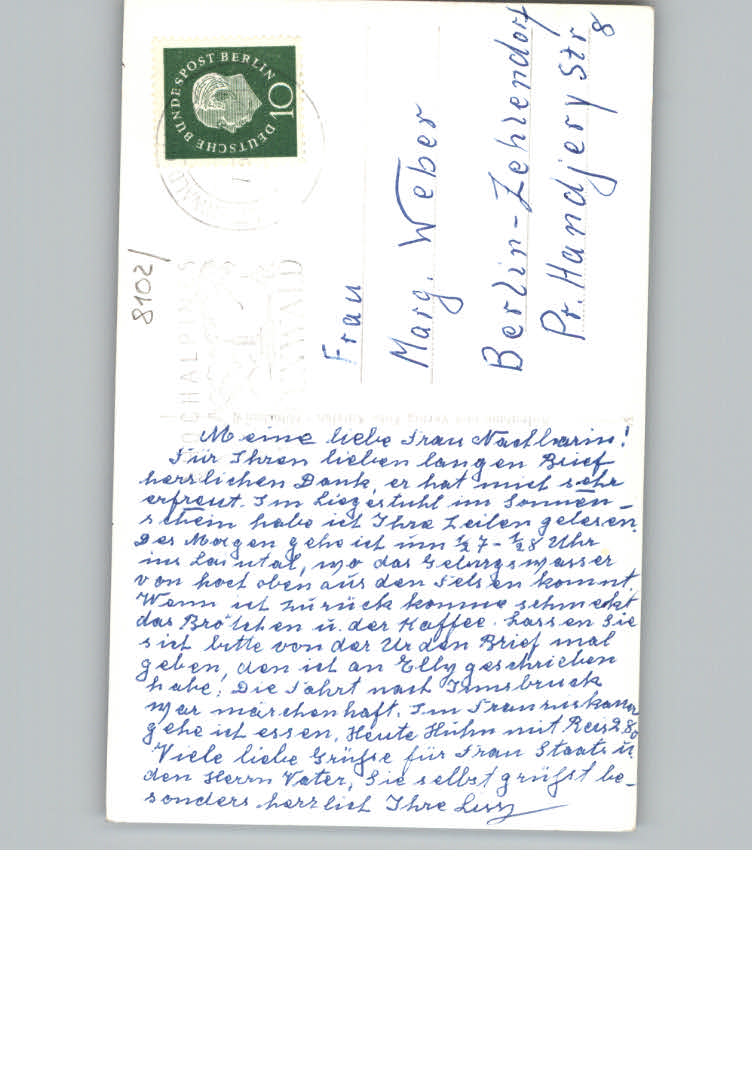 DEUTSCHE BUNDESPOST BERLIN
10
8102/
HOCHALPINES
Frau
Marg. Weber
Berlin-Zehlendorf
Pr. Handjery Str
8
Meine liebe Frau Nachbarin!
Für Ihren lieben langen Brief
herzlichen Dank, er hat mich sehr
erfreut. Im Liegestuhl im Sonnen-
schein habe ich Ihre Zeilen gelesen.
Des Morgen gehe ich um ½7-½8 Uhr
ins Laintal, wo das Gebirgswasser
von hoch oben aus den Felsen kommt.
Wenn ich zurück komme schmeckt
das Brötchen u. der Kaffee. Lassen Sie
sich bitte von der den Brief mal
geben, den ich an Elly geschrieben
habe! Die Fahrt nach Innsbruck
war märchenhaft. Im
gehe ich essen. Heute Huhn mit Reis 2.80
Viele liebe Grüße für Frau Staats u.
den Herrn Vater, Sie selbst grüßt be-
sonders herzlich Ihre